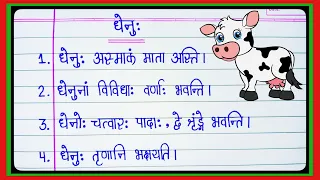 धेनुः
1. धेनुः अस्माकं माता अस्ति।
2. धेनुनां विविधाः वर्णाः भवन्ति।
3. धेनोः चत्वारः पादाः, द्वे शृंङ्गे भवन्ति।
4. धेनुः तृणानि भक्षयति।